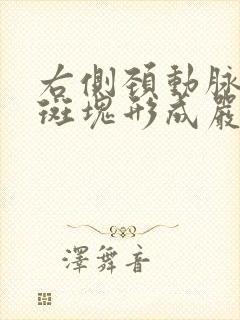 右側頚動脉
斑塊形成嚴
澤舞音